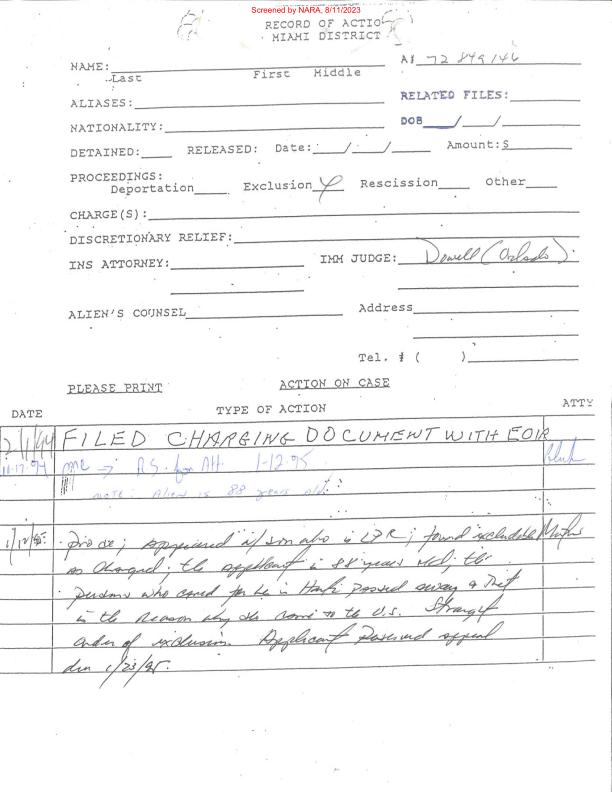 Screened by NARA, 8/11/2023
RECORD OF ACTIO
MIAMI DISTRICT
NAME: A# 72 849 146
Last First Middle
ALIASES: RELATED FILES:
NATIONALITY: DOB / /
DETAINED: RELEASED: Date: / / Amount:$
PROCEEDINGS:
Deportation Exclusion Y Rescission Other
CHARGE(S):
DISCRETIONARY RELIEF:
INS ATTORNEY: IMM JUDGE: Dowell (Orlando)
ALIEN'S COUNSEL Address
Tel. # ( )
PLEASE PRINT ACTION ON CASE
DATE TYPE OF ACTION ATTY
2/1/94 FILED CHARGING DOCUMENT WITH EOIR
11-17-94 MC → R.S. for Att. 1-12-95
note: Alien is 88 years old.
1/12/95 pro se; appeared w/ son who is LPR; found excludable
as charged; the applicant is 88 years old; the
persons who cared for her in Haiti passed away & that
is the reason why she came to the U.S. Straight
order of exclusion. Applicant reserved appeal
due 1/23/95.